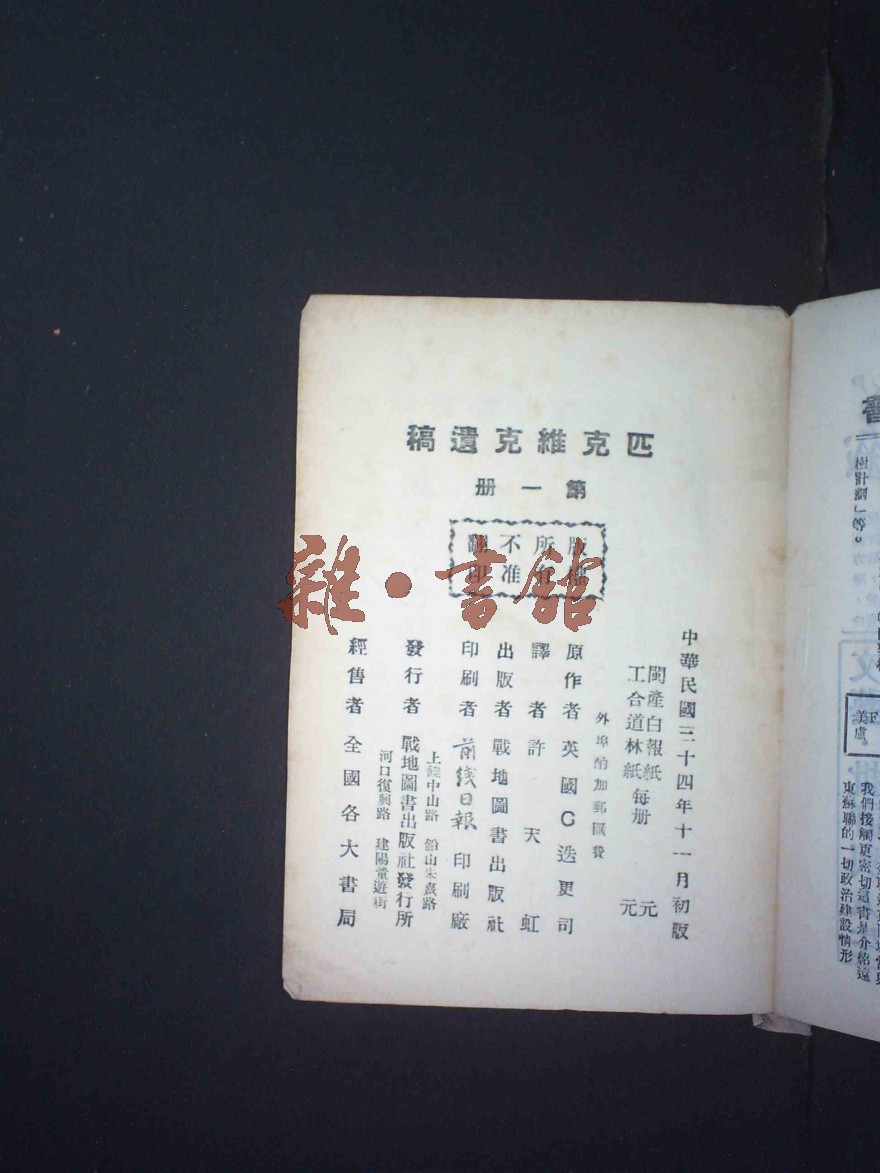 匹克維克遺稿
第一册
版權
所有
不准
翻印
中華民國三十四年十一月初版
閩產白報紙 元
工合道林紙 每册 元
外埠酌加郵匯費
原作者 英國C迭更司
譯者 許天虹
出版者 戰地圖書出版社
印刷者 前綫日報印刷廠
上饒中山路 鉛山朱熹路
發行者 戰地圖書出版社發行所
河口復興路 建陽童遊街
經售者 全國各大書局
雜·書館
我們接觸更密切這書是介紹遠
東蘇聯的一切政治建設情形